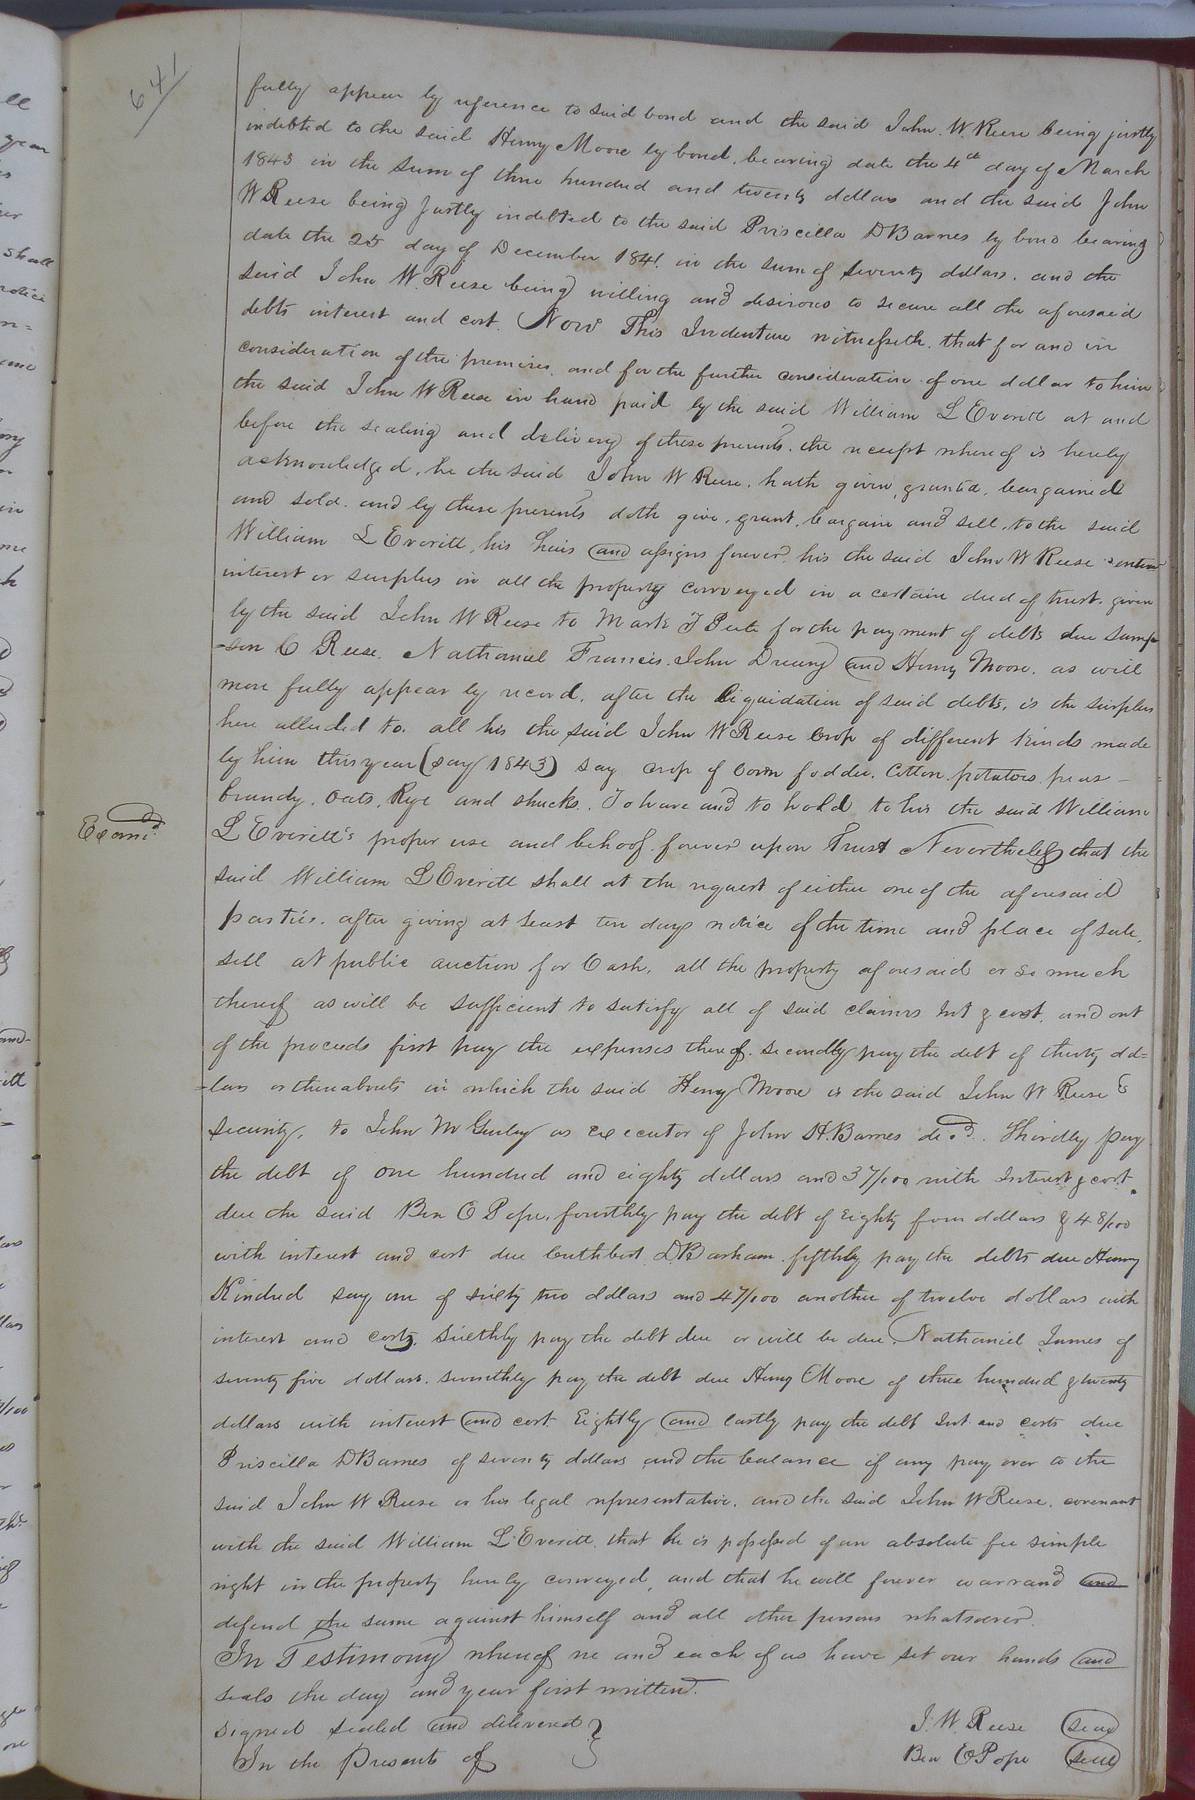 641
fully appear by reference to said bond and the said John W Reese being justly
indebted to the said Henry Moore by bond, bearing date the 4th day of March
1843 in the sum of three hundred and twenty dollars and the said John
W Reese being justly indebted to the said Priscilla D Barnes by bond bearing
date the 25 day of December 1841 in the sum of seventy dollars. and the
said John W. Reese being willing and desirous to secure all the aforesaid
debts interest and cost. Now This Indenture witnesseth. that for and in
consideration of the premises, and for the further consideration of one dollar to him
the said John W Reese in hand paid by the said William L Everett at and
before the sealing and delivery of these presents, the receipt whereof is hereby
acknowledged, he the said John W Reese, hath given, granted, bargained
and sold and by these presents doth give, grant, bargain and sell, to the said
William L Everitt, his heirs and assigns forever, his the said John W Reese entire
interest or surplus in all the property conveyed in a certain deed of trust given
by the said John W Reese to Mark F Peete for the payment of debts due Samp-
-son C Reese, Nathaniel Francis, John Drewry and Henry Moore, as will
more fully appear by record, after the liquidation of said debts, is the surplus
here alluded to. all his the said John W Reese crop of different kinds made
by him this year (say 1843) say crop of corn fodder, cotton, potatoes, peas
brandy, oats, Rye and shucks. To have and to hold to his the said William
L Everitt's proper use and behoof forever upon Trust Nevertheless that the
Exami.d
said William L Everitt shall at the request of either one of the aforesaid
parties, after giving at least ten days notice of the time and place of sale,
sell at public auction for Cash, all the property aforesaid or so much
thereof as will be sufficient to satisfy all of said claims Int & cost, and out
of the proceeds first pay the expenses thereof. secondly pay the debt of thirty dol=
-lars or thereabouts in which the said Henry Moore is the said John W Reese's
security, to John M Gurley as executor of John H. Barnes decd. Thirdly pay
the debt of one hundred and eighty dollars and 37/100 with Interest & cost.
due the said Ben E Pope, fourthly pay the debt of Eighty four dollars & 48/100
with interest and cost due Cuthbert D. Barham. fifthly pay the debts due Henry
Kindred say one of sixty two dollars and 47/100 another of twelve dollars with
interest and costs. Sixthly pay the debt due or will be due Nathaniel James of
seventy five dollars. seventhly pay the debt due Henry Moore of three hundred & twenty
dollars with interest and cost Eightly and lastly pay the debt Int. and costs due
Priscilla D Barnes of seventy dollars and the balance if any pay over to the
said John W Reese or his legal representative. and the said John W Reese, covenant
with the said William L. Everitt, that he is possessed of an absolute fee simple
right in the property hereby conveyed, and that he will forever warrand and
defend the same against himself and all other persons whatsoever.
In Testimony whereof we and each of us have set our hands and
seals the day and year first written.
signed sealed and delivered
In the Presents of
J. W. Reese seal
Ben E Pope seal